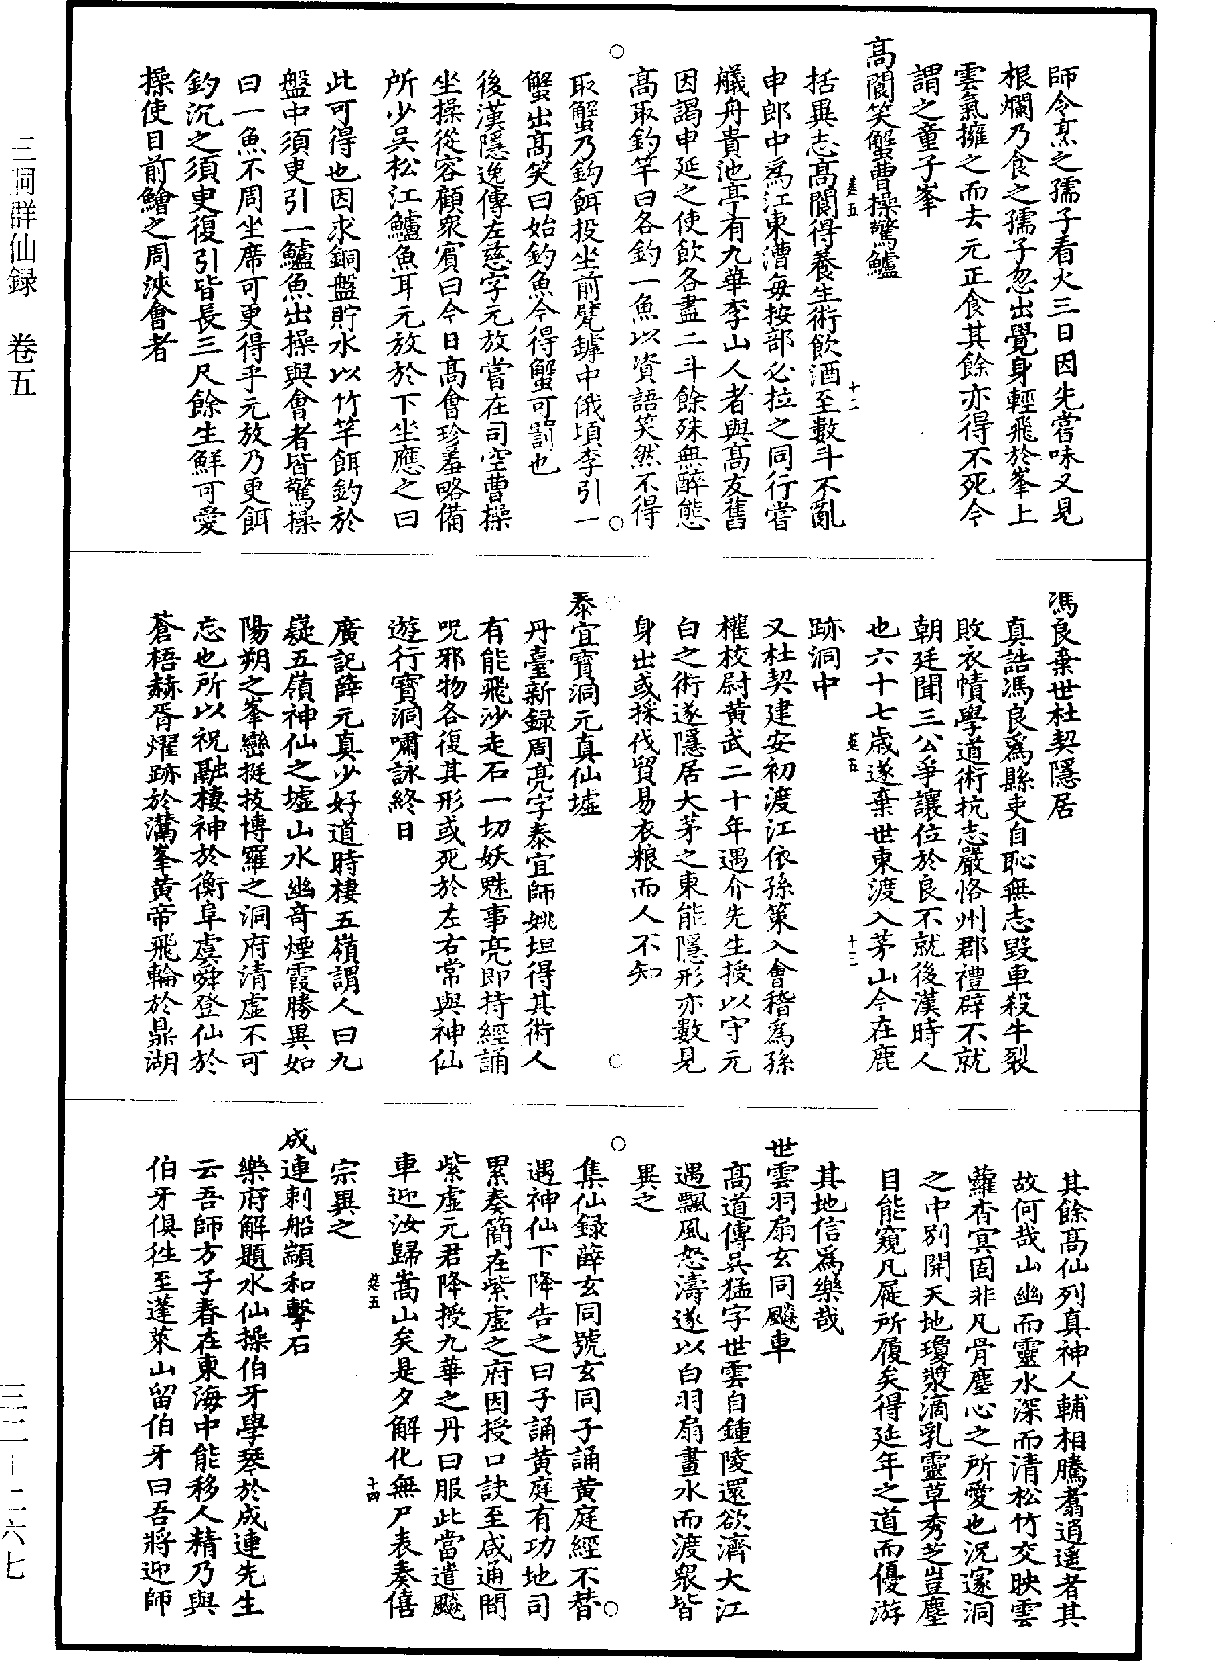 師令烹之孺子看火三日因先嘗味又見
根爛乃食之孺子忽出覺身輕飛於峯上
雲氣擁之而去元正食其餘亦得不死今
謂之童子峯
高閬笑蟹曹操驚鱸
括異志高閬得養生術飲酒至數斗不亂
申郎中爲江東漕每按部必拉之同行嘗
艤舟貴池亭有九華李山人者與高友舊
因謁申延之使飲各盡二斗餘殊無醉態
高取釣竿曰各釣一魚以資語笑然不得
取蟹乃鈎餌投坐前甓罅中俄頃李引一
蟹出高笑曰始釣魚今得蟹可罰也
後漢隱逸傳左慈字元放嘗在司空曹操
坐操從容顧衆賓曰今日高會珍羞略備
所少吳松江鱸魚耳元放於下坐應之曰
此可得也因求銅盤貯水以竹竿餌釣於
盤中須吏引一鱸魚出操與會者皆驚操
曰一魚不周坐席可更得乎元放乃更餌
釣沉之須吏復引皆長三尺餘生鮮可愛
操使目前鱠之周浹會者
馮良棄世杜契隱居
真誥馮良爲縣吏自恥無志毀車殺牛裂
敗衣幘學道術抗志嚴恪州郡禮辟不就
朝廷聞三公爭讓位於良不就後漢時人
也六十七歲遂棄世東渡入茅山今在鹿
跡洞中
又杜契建安初渡江依孫策入會稽爲孫
權校尉黄武二十年遇介先生授以守元
白之術遂隱居大茅之東能隱形亦數見
身出或採伐貿易衣粮而人不知
泰宜寶洞元真仙墟
丹臺新録周亮字泰宜師姚坦得其術人
有能飛沙走石一切妖魅事亮即持經誦
呪邪物各復其形或死於左右常與神仙
遊行寶洞嘯詠終日
廣記薛元真少好道時棲五嶺謂人曰九
疑五嶺神仙之墟山水幽奇煙霞勝異如
陽朔之峯巒挺拔博羅之洞府清虚不可
忘也所以祝融棲神於衡阜虞舜登仙於
蒼梧赫胥燿跡於潛峯黄帝飛輪於鼎湖
其餘高仙列真神人輔相騰翥逍遥者其
故何哉山幽而靈水深而清松竹交映雲
蘿杳冥固非凡骨塵心之所愛也況邃洞
之中別開天地瓊漿滴乳靈草秀芝豈塵
目能窺凡屣所履矣得延年之道而優游
其地信爲樂哉
世雲羽扇玄同飈車
高道傳吳猛字世雲自鍾陵還欲濟大江
遇飄風怒濤遂以白羽扇畫水而渡衆皆
異之
集仙録薛玄同號玄同子誦黄庭經不替
遇神仙下降告之曰子誦黄庭有功地司
累奏簡在紫虚之府因授口訣至咸通間
紫虚元君降授九華之丹曰服此當遣飈
車迎汝歸嵩山矣是夕解化無尸表奏僖
宗異之
成連剌船顓和擊石
樂府解題水仙操伯牙學琴於成連先生
云吾師方子春在東海中能移人精乃與
伯牙俱徃至蓬萊山留伯牙曰吾將迎師
三洞群仙録 卷五
三二—二六七